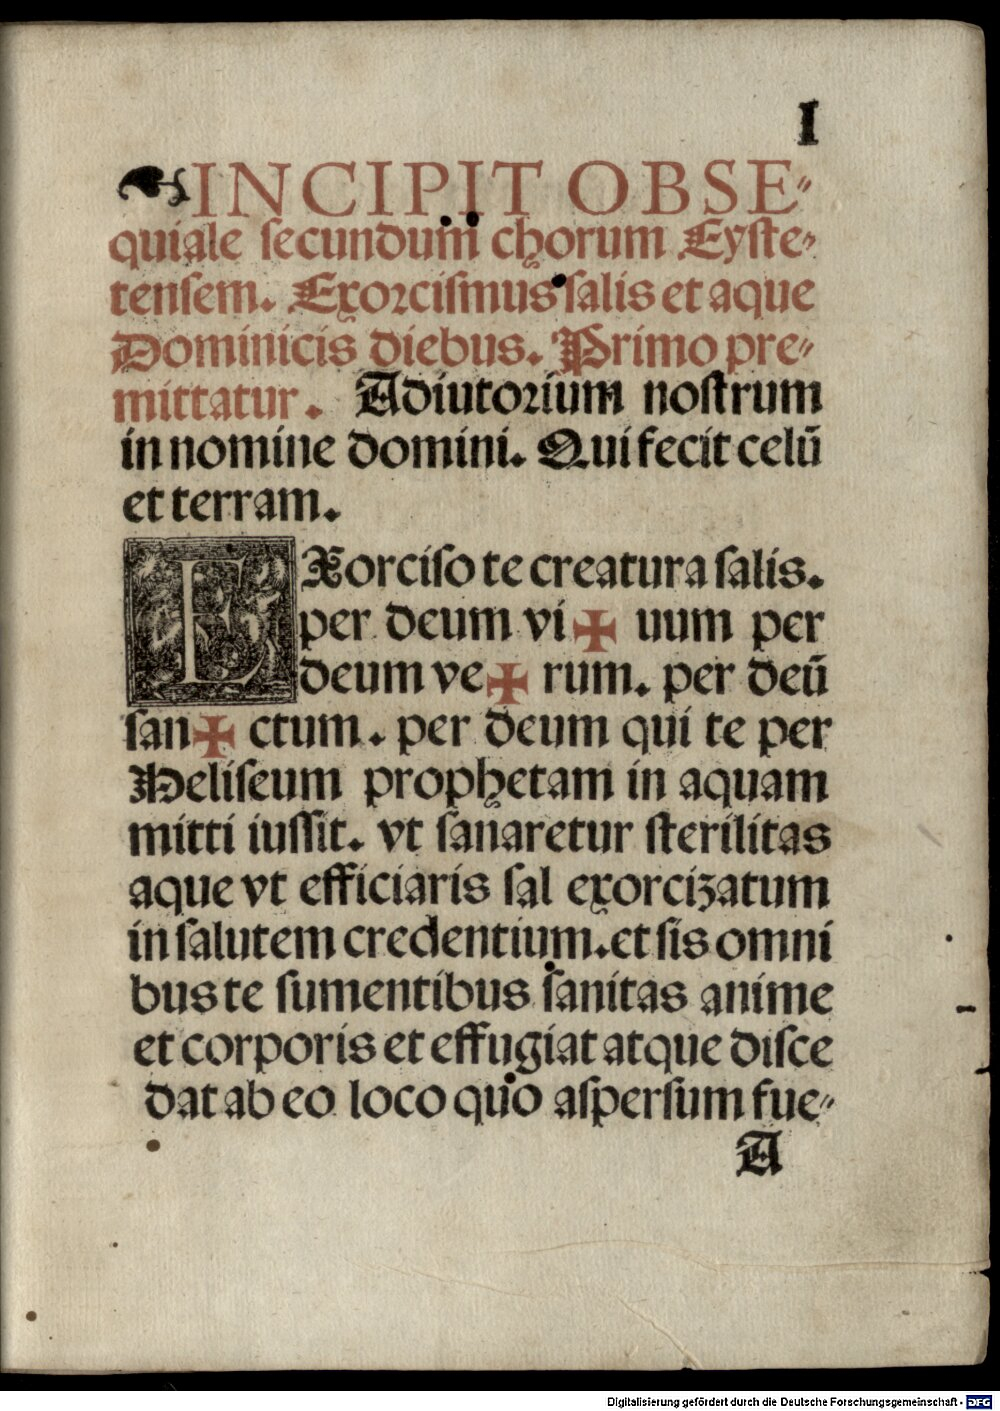 I
INCIPIT OBSE-
quiale secundum chorum Eyste-
tensem. Exorcismus salis et aque
Dominicis diebus. Primo pre-
mittatur. Adiutorium nostrum
in nomine domini. Qui fecit celū
et terram.
EXorciso te creatura salis.
per deum vi✠ uum per
deum ve✠ rum. per deū
san✠ ctum. per deum qui te per
Heliseum prophetam in aquam
mitti iussit. vt sanaretur sterilitas
aque vt efficiaris sal exorcizatum
in salutem credentium. et sis omni
bus te sumentibus sanitas anime
et corporis et effugiat atque disce
dat ab eo loco quo aspersum fue-
A
Digitalisierung gefördert durch die Deutsche Forschungsgemeinschaft - DFG